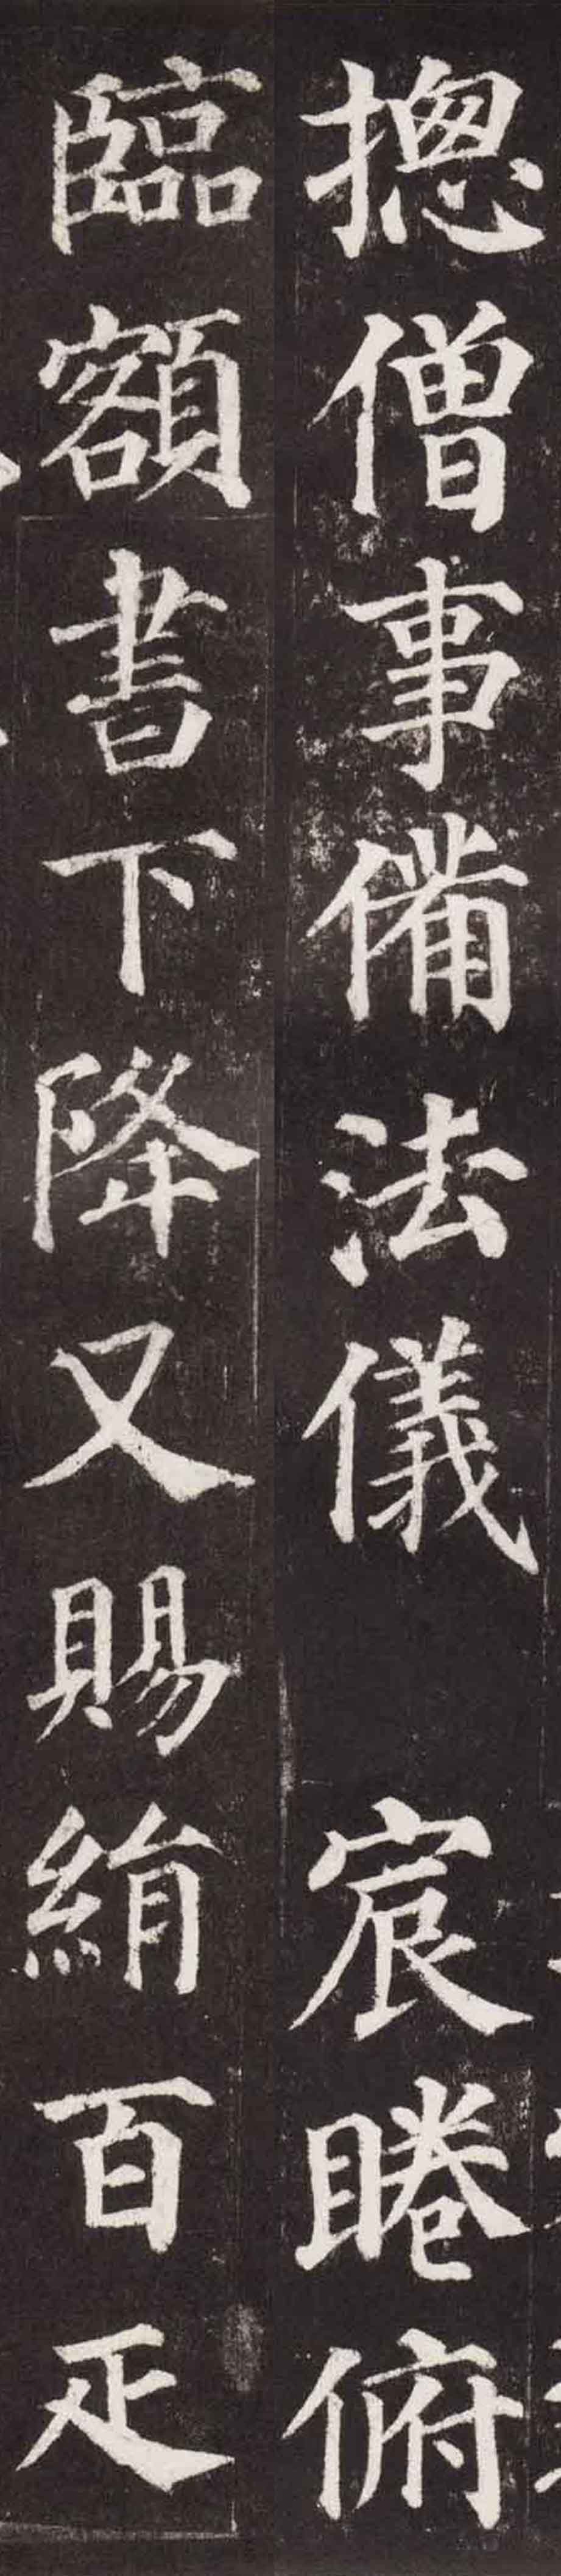 摠僧事備法儀　宸睠俯
臨額書下降又賜絹百疋